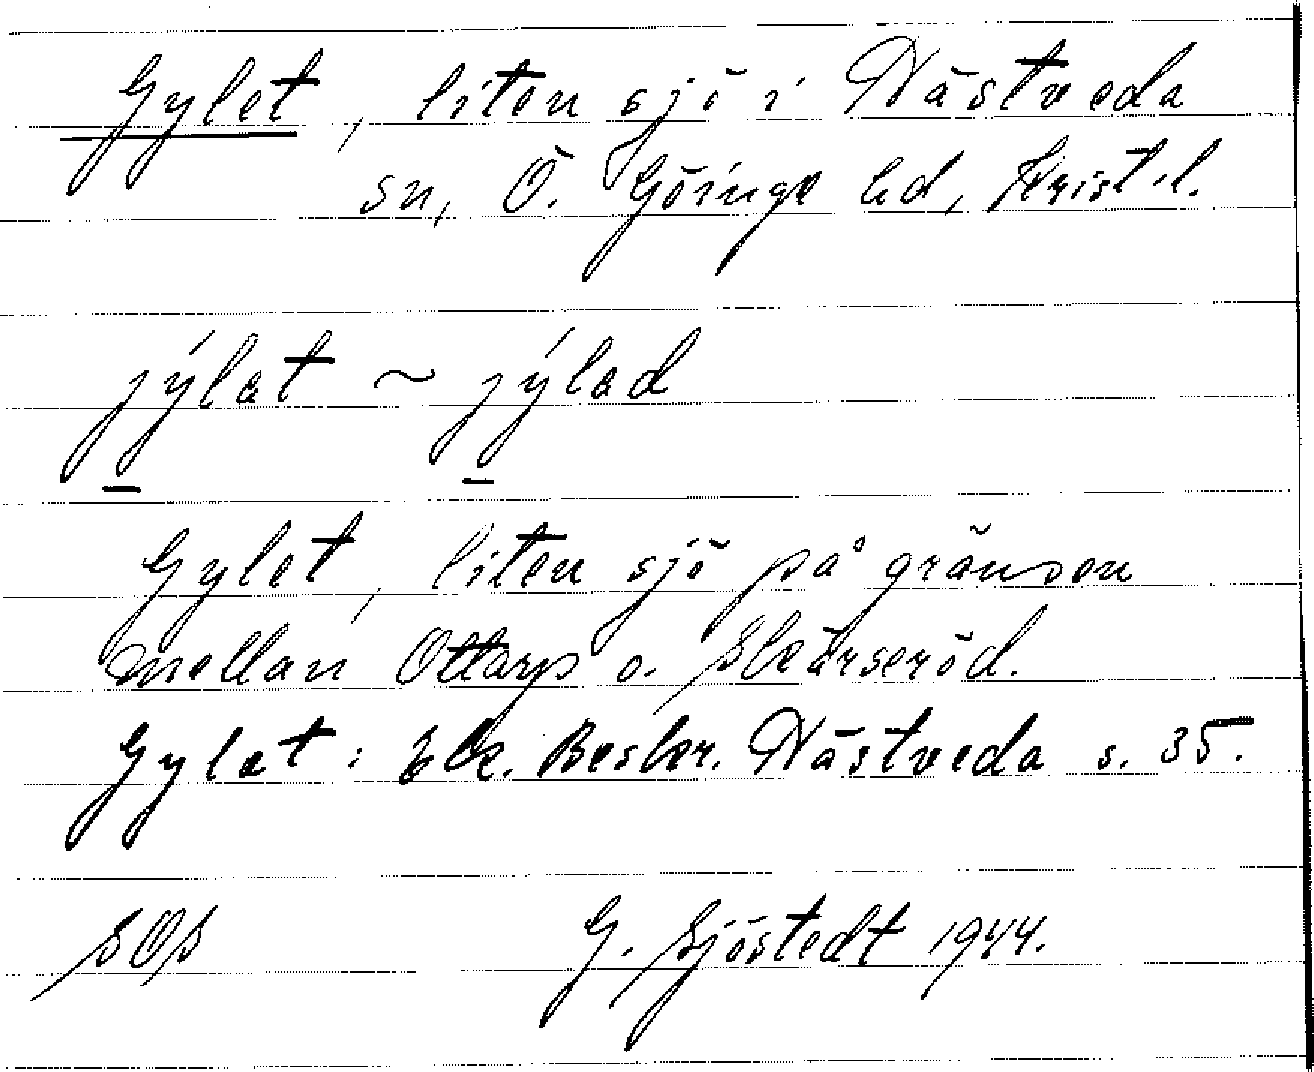 Gylet, liten sjö i Nästveda
sn, Ö. Göinge hd, Krist. l.
jýlat ~ jýlad
Gylet, liten sjö på gränsen
mellan Ottarp o. Skärseröd.
Gylet: Ek. Beskr. Nästveda s. 35.
SOS G. Sjöstedt 1944.